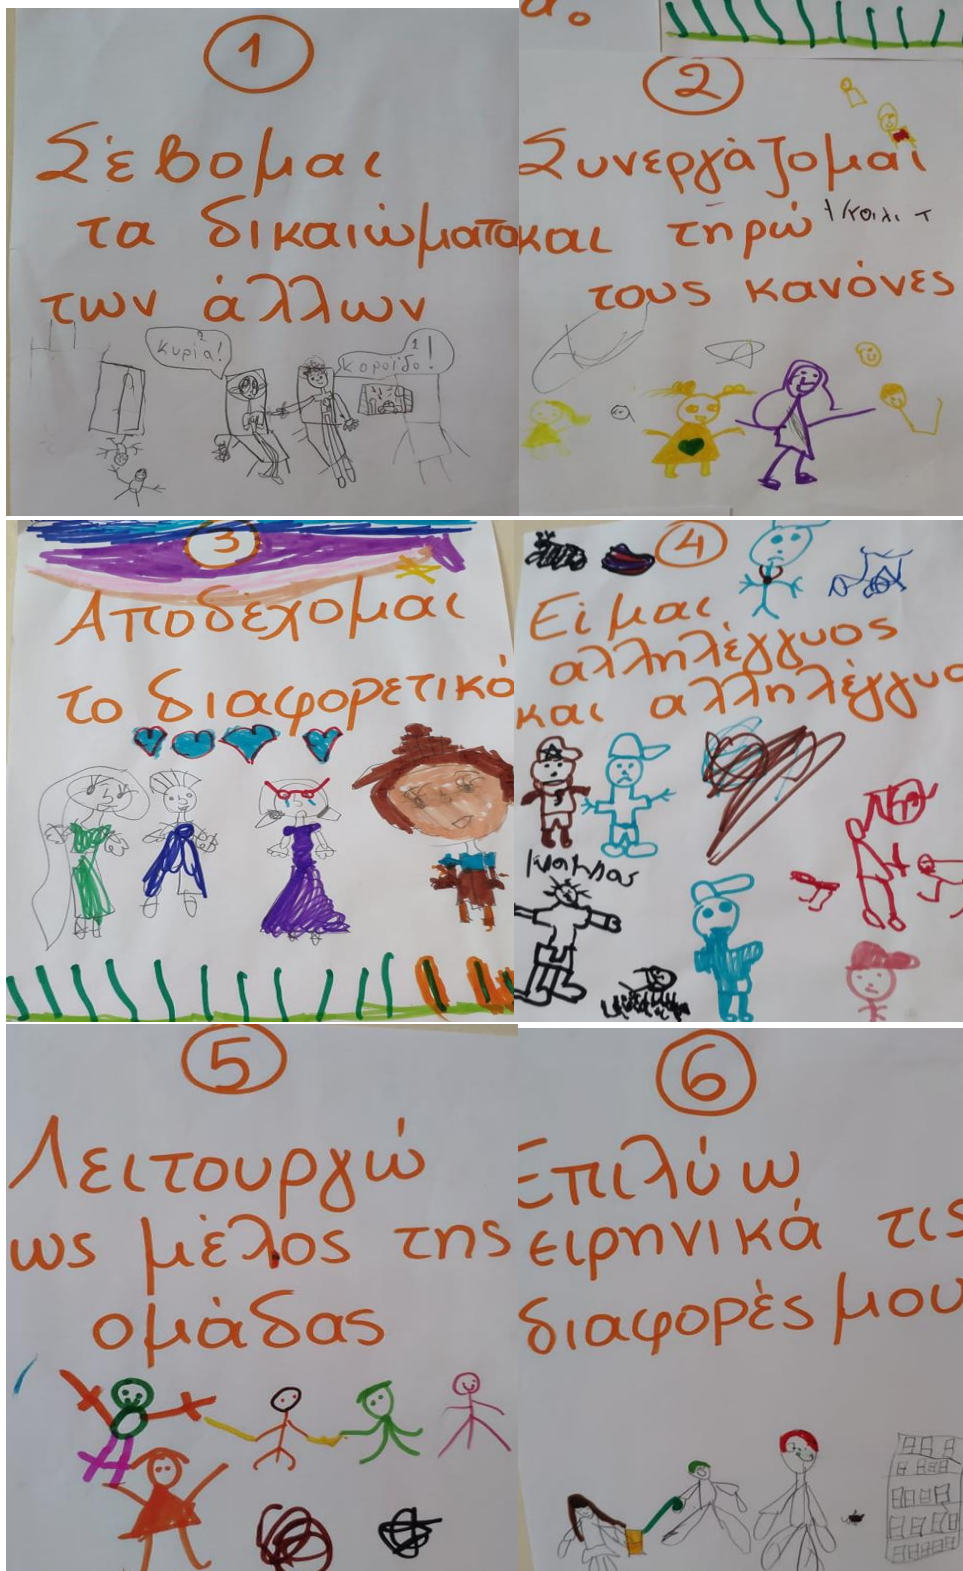 1
Σέβομαι
τα δικαιώματα
των άλλων
Κυρία!
Κοροϊδο!
2
Συνεργάζομαι
και τηρώ
τους κανόνες
3
Αποδέχομαι
το διαφορετικό
4
Είμαι
αλληλέγγυος
και αλληλέγγυα
5
Λειτουργώ
ως μέλος της
ομάδας
6
Επιλύω
ειρηνικά τις
διαφορές μου